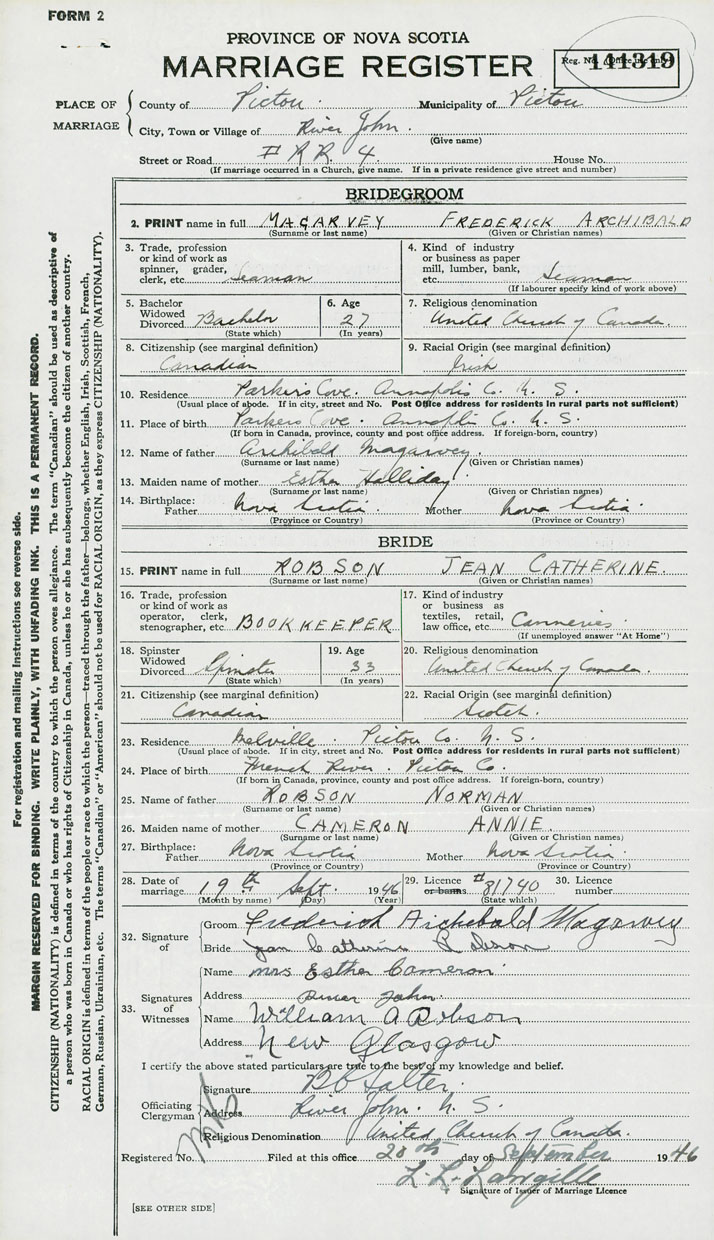 FORM 2
PROVINCE OF NOVA SCOTIA
MARRIAGE REGISTER
Reg. No. (Office use only)
141319
PLACE OF MARRIAGE
County of Pictou. Municipality of Pictou
City, Town or Village of River John.
(Give name)
Street or Road # R R. 4. House No.
(If marriage occurred in a Church, give name. If in a private residence give street and number)
BRIDEGROOM
2. PRINT name in full MAGARVEY FREDERICK ARCHIBALD
(Surname or last name) (Given or Christian names)
3. Trade, profession or kind of work as spinner, grader, clerk, etc. Seaman
4. Kind of industry or business as paper mill, lumber, bank, etc. Seaman
(If labourer specify kind of work above)
5. Bachelor Widowed Divorced Bachelor
(State which)
6. Age 27
(In years)
7. Religious denomination
United Church of Canada.
8. Citizenship (see marginal definition)
Canadian
9. Racial Origin (see marginal definition)
Irish
10. Residence Parkers Cove. Annapolis Co. N. S.
(Usual place of abode. If in city, street and No. Post Office address for residents in rural parts not sufficient)
11. Place of birth Parkers Cove. Annapolis Co. N. S.
(If born in Canada, province, county and post office address. If foreign-born, country)
12. Name of father Archibald Magarvey
(Surname or last name) (Given or Christian names)
13. Maiden name of mother Esther Halliday
(Surname or last name) (Given or Christian names)
14. Birthplace: Father Nova Scotia Mother Nova Scotia
(Province or Country) (Province or Country)
BRIDE
15. PRINT name in full ROBSON JEAN CATHERINE.
(Surname or last name) (Given or Christian names)
16. Trade, profession or kind of work as operator, clerk, stenographer, etc BOOKKEEPER
17. Kind of industry or business as textiles, retail, law office, etc. Canneries.
(If unemployed answer "At Home")
18. Spinster Widowed Divorced Spinster
(State which)
19. Age 33
(In years)
20. Religious denomination
United Church of Canada.
21. Citizenship (see marginal definition)
Canadian
22. Racial Origin (see marginal definition)
Scotch.
23. Residence Melville Pictou Co. N. S.
(Usual place of abode. If in city, street and No. Post Office address for residents in rural parts not sufficient)
24. Place of birth French River. Pictou Co.
(If born in Canada, province, county and post office address. If foreign-born, country)
25. Name of father ROBSON NORMAN
(Surname or last name) (Given or Christian names)
26. Maiden name of mother CAMERON ANNIE.
(Surname or last name) (Given or Christian names)
27. Birthplace: Father Nova Scotia Mother Nova Scotia
(Province or Country) (Province or Country)
28. Date of marriage 19th Sept. 1946
(Month by name) (Day) (Year)
29. Licence or banns #81740
(State which)
30. Licence number
32. Signature of
Groom Frederick Archibald Magarvey
Bride Jean Catherine Robson
33. Signatures of Witnesses
Name Mrs Esther Cameron
Address River John.
Name William A Robson
Address New Glasgow
I certify the above stated particulars are true to the best of my knowledge and belief.
Officiating Clergyman
Signature Salter.
Address River John. N. S.
Religious Denomination United Church of Canada.
Registered No. Filed at this office 20th day of September 1946
L. L. Langille
Signature of Issuer of Marriage Licence
[SEE OTHER SIDE]
For registration and mailing instructions see reverse side.
MARGIN RESERVED FOR BINDING. WRITE PLAINLY, WITH UNFADING INK. THIS IS A PERMANENT RECORD.
CITIZENSHIP (NATIONALITY) is defined in terms of the country to which the person owes allegiance. The term "Canadian" should be used as descriptive of
a person who was born in Canada or who has rights of Citizenship in Canada, unless he or she has subsequently become the citizen of another country.
RACIAL ORIGIN is defined in terms of the people or race to which the person—traced through the father—belongs, whether English, Irish, Scottish, French,
German, Russian, Ukrainian, etc. The terms "Canadian" or "American" should not be used for RACIAL ORIGIN, as they express CITIZENSHIP (NATIONALITY).